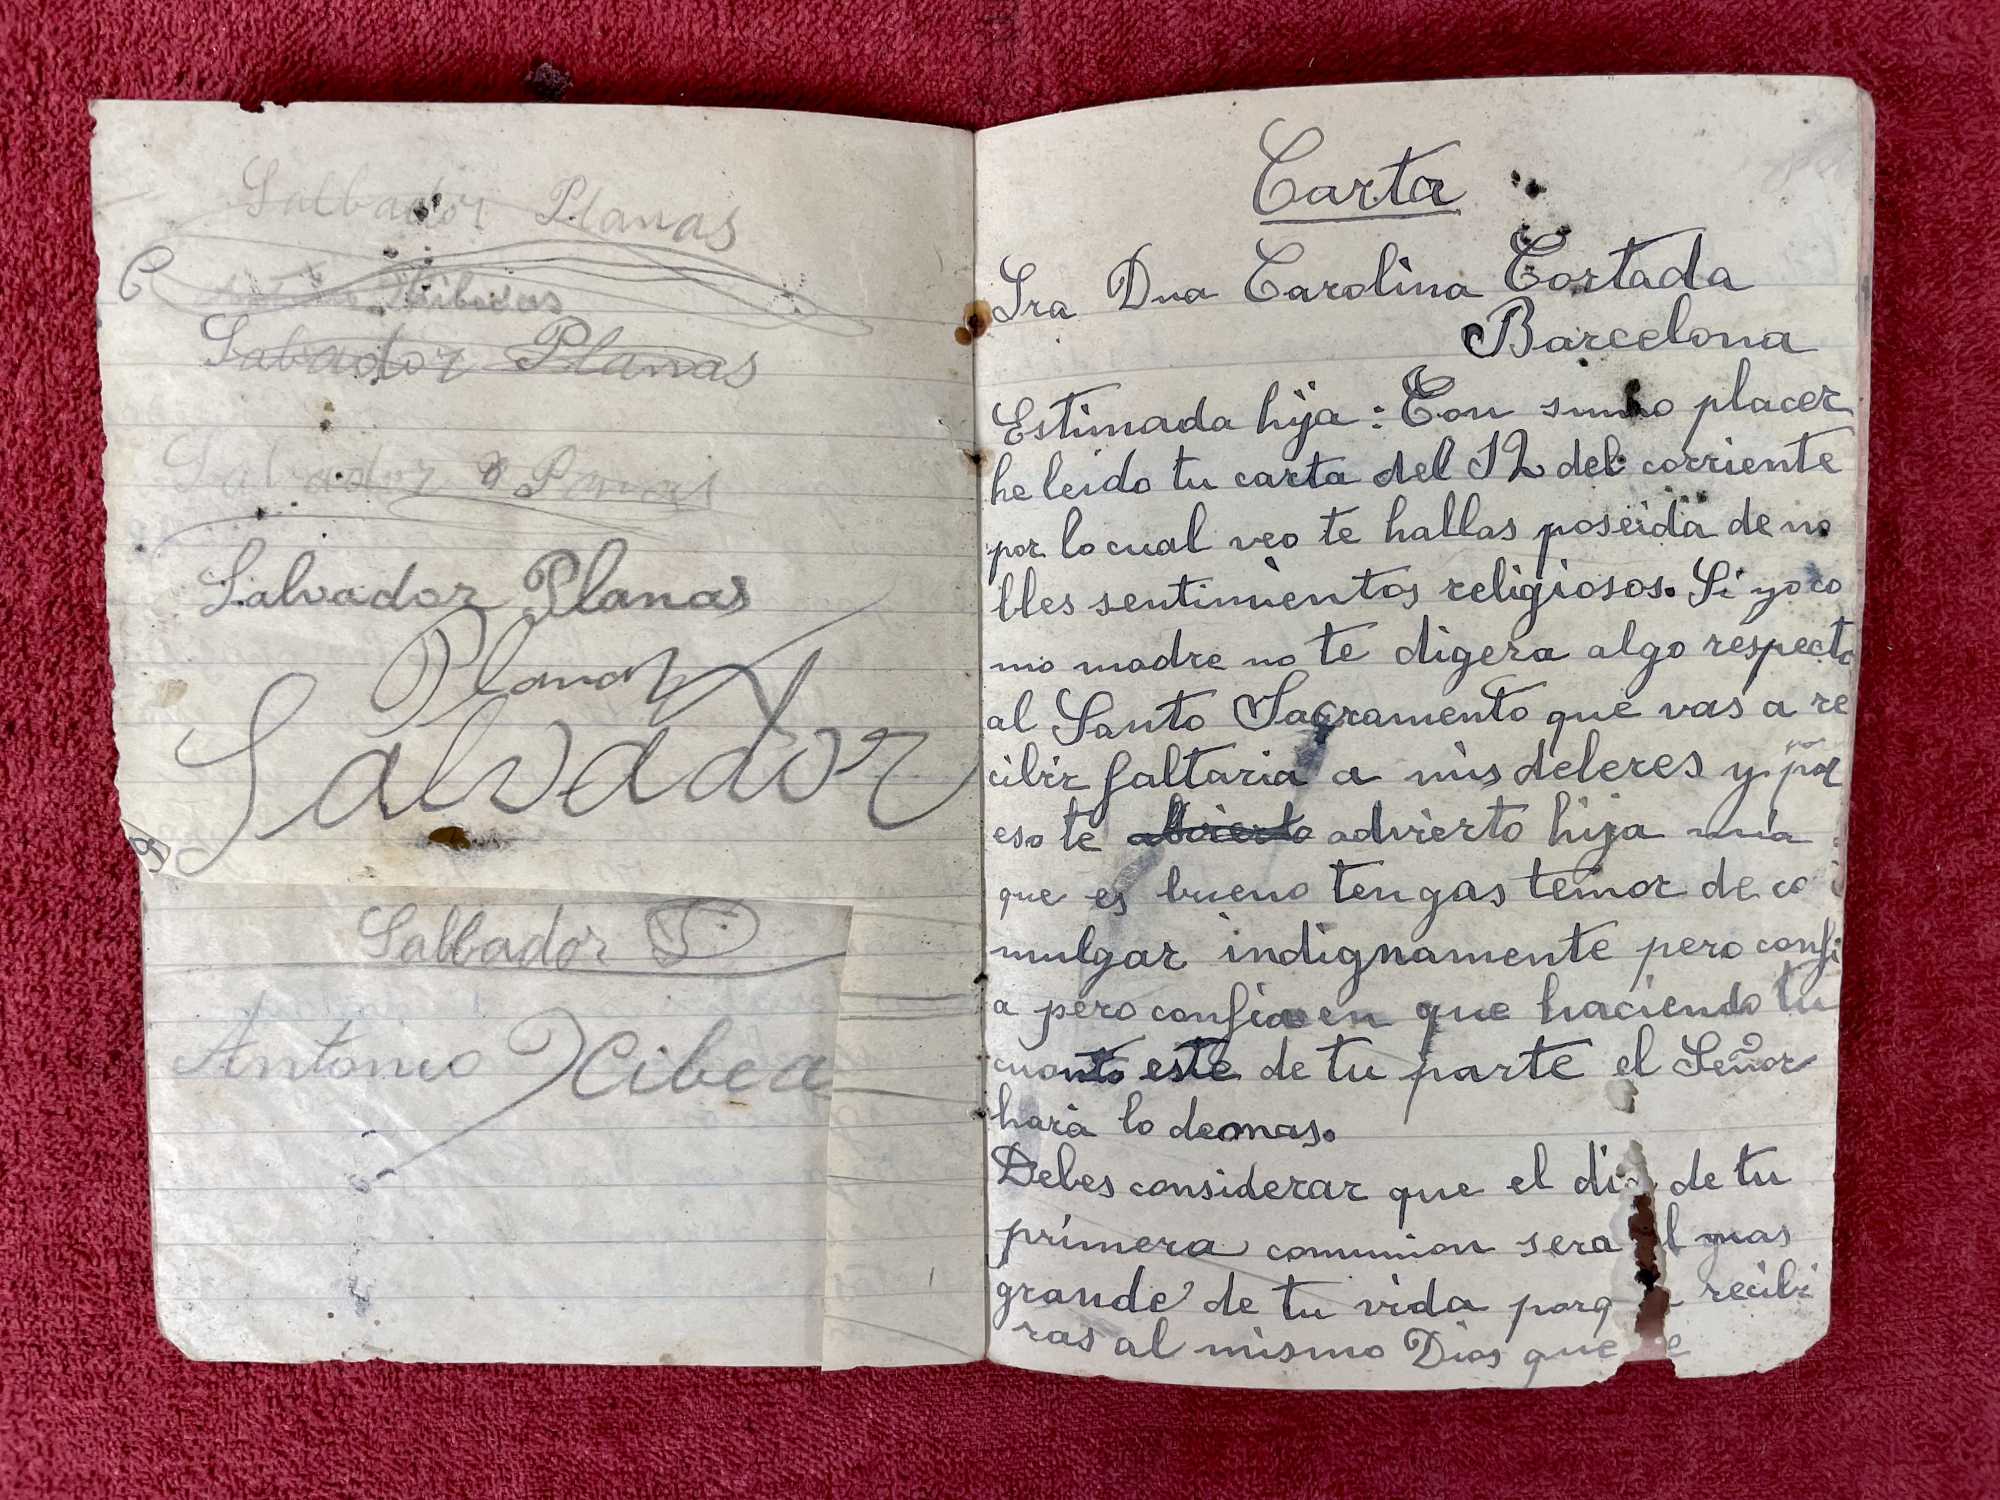 Salbador Planas
Sabador Planas
Salvador Planas
Planas
Salvador
Salbador
Antonio
Carta
Sra Dna Carolina Cortada
Barcelona
Estimada hija: Con sumo placer
he leido tu carta del 12 del corriente
por lo cual veo te hallas poseida de no
bles sentimientos religiosos. Si yo co
mo madre no te digera algo respecto
al Santo Sacramento que vas a re
cibir faltaria a mis deberes y por
eso te advierto hija mia
que es bueno tengas temor de co
mulgar indignamente pero confi
a pero confia en que haciendo tu
cuanto este de tu parte el Señor
hará lo demas.
Debes considerar que el dia de tu
primera comunion sera el mas
grande de tu vida recibi
ras al mismo Dios que